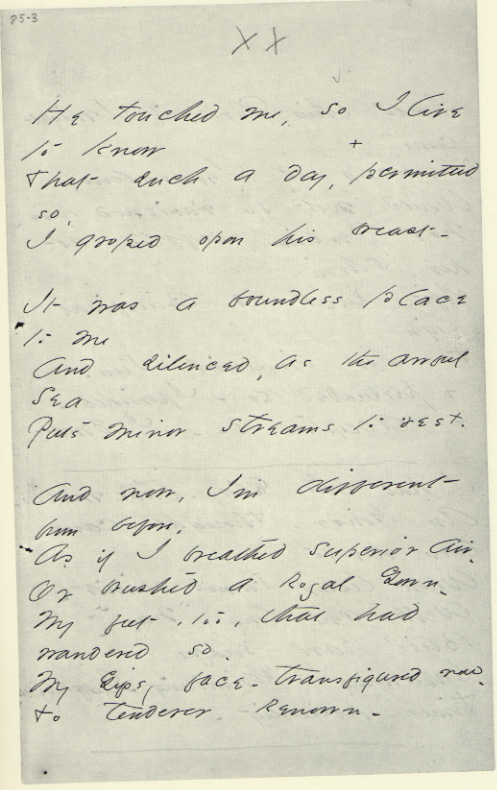 85-3
XX
He touched me, so I live
to know
+
That such a day, permitted
so,
I groped upon his breast -
It was a boundless place
to me
And silenced, as the awful
Sea
Puts minor streams to rest.
And now, I'm different
from before,
As if I breathed superior air,
Or brushed a Royal Gown -
My feet, too, that had
wandered so -
My Gipsy face - transfigured now
To tenderer Renown -